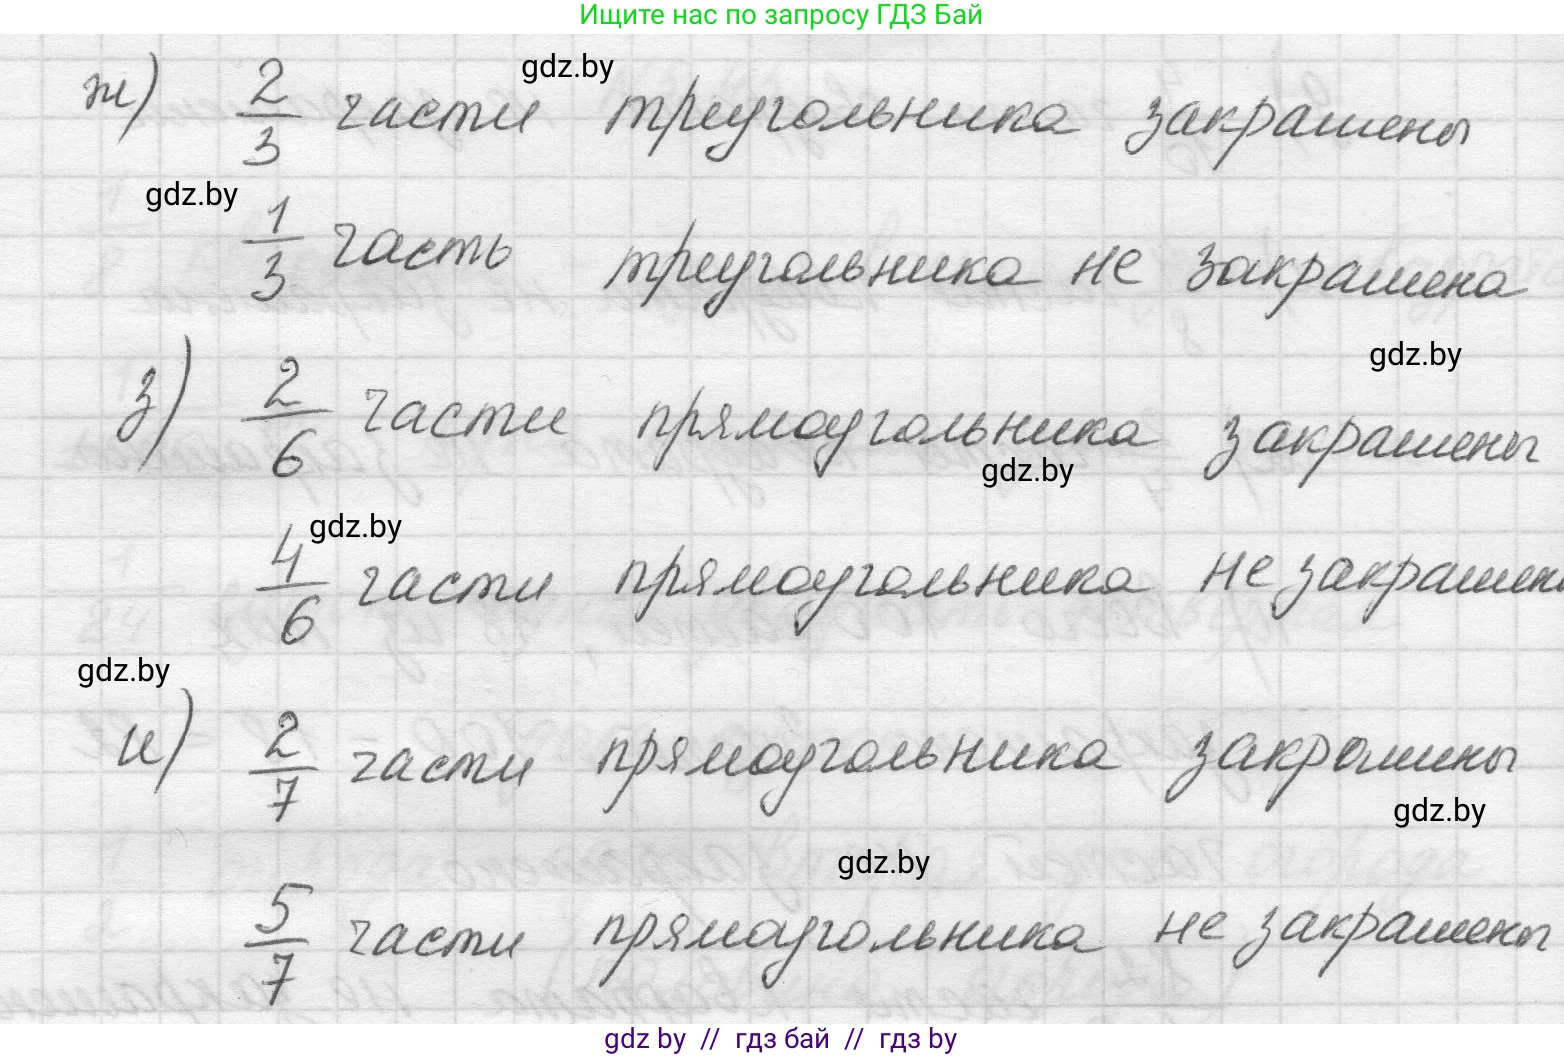 Ищите нас по запросу ГДЗ Бай
ж) 2/3 части треугольника закрашены
gdz.by
gdz.by
1/3 часть треугольника не закрашена
gdz.by
з) 2/6 части прямоугольника закрашены
gdz.by
gdz.by
4/6 части прямоугольника не закрашены
gdz.by
и) 2/7 части прямоугольника закрашены
gdz.by
gdz.by
5/7 части прямоугольника не закрашены
gdz by // гдз бай // гдз by